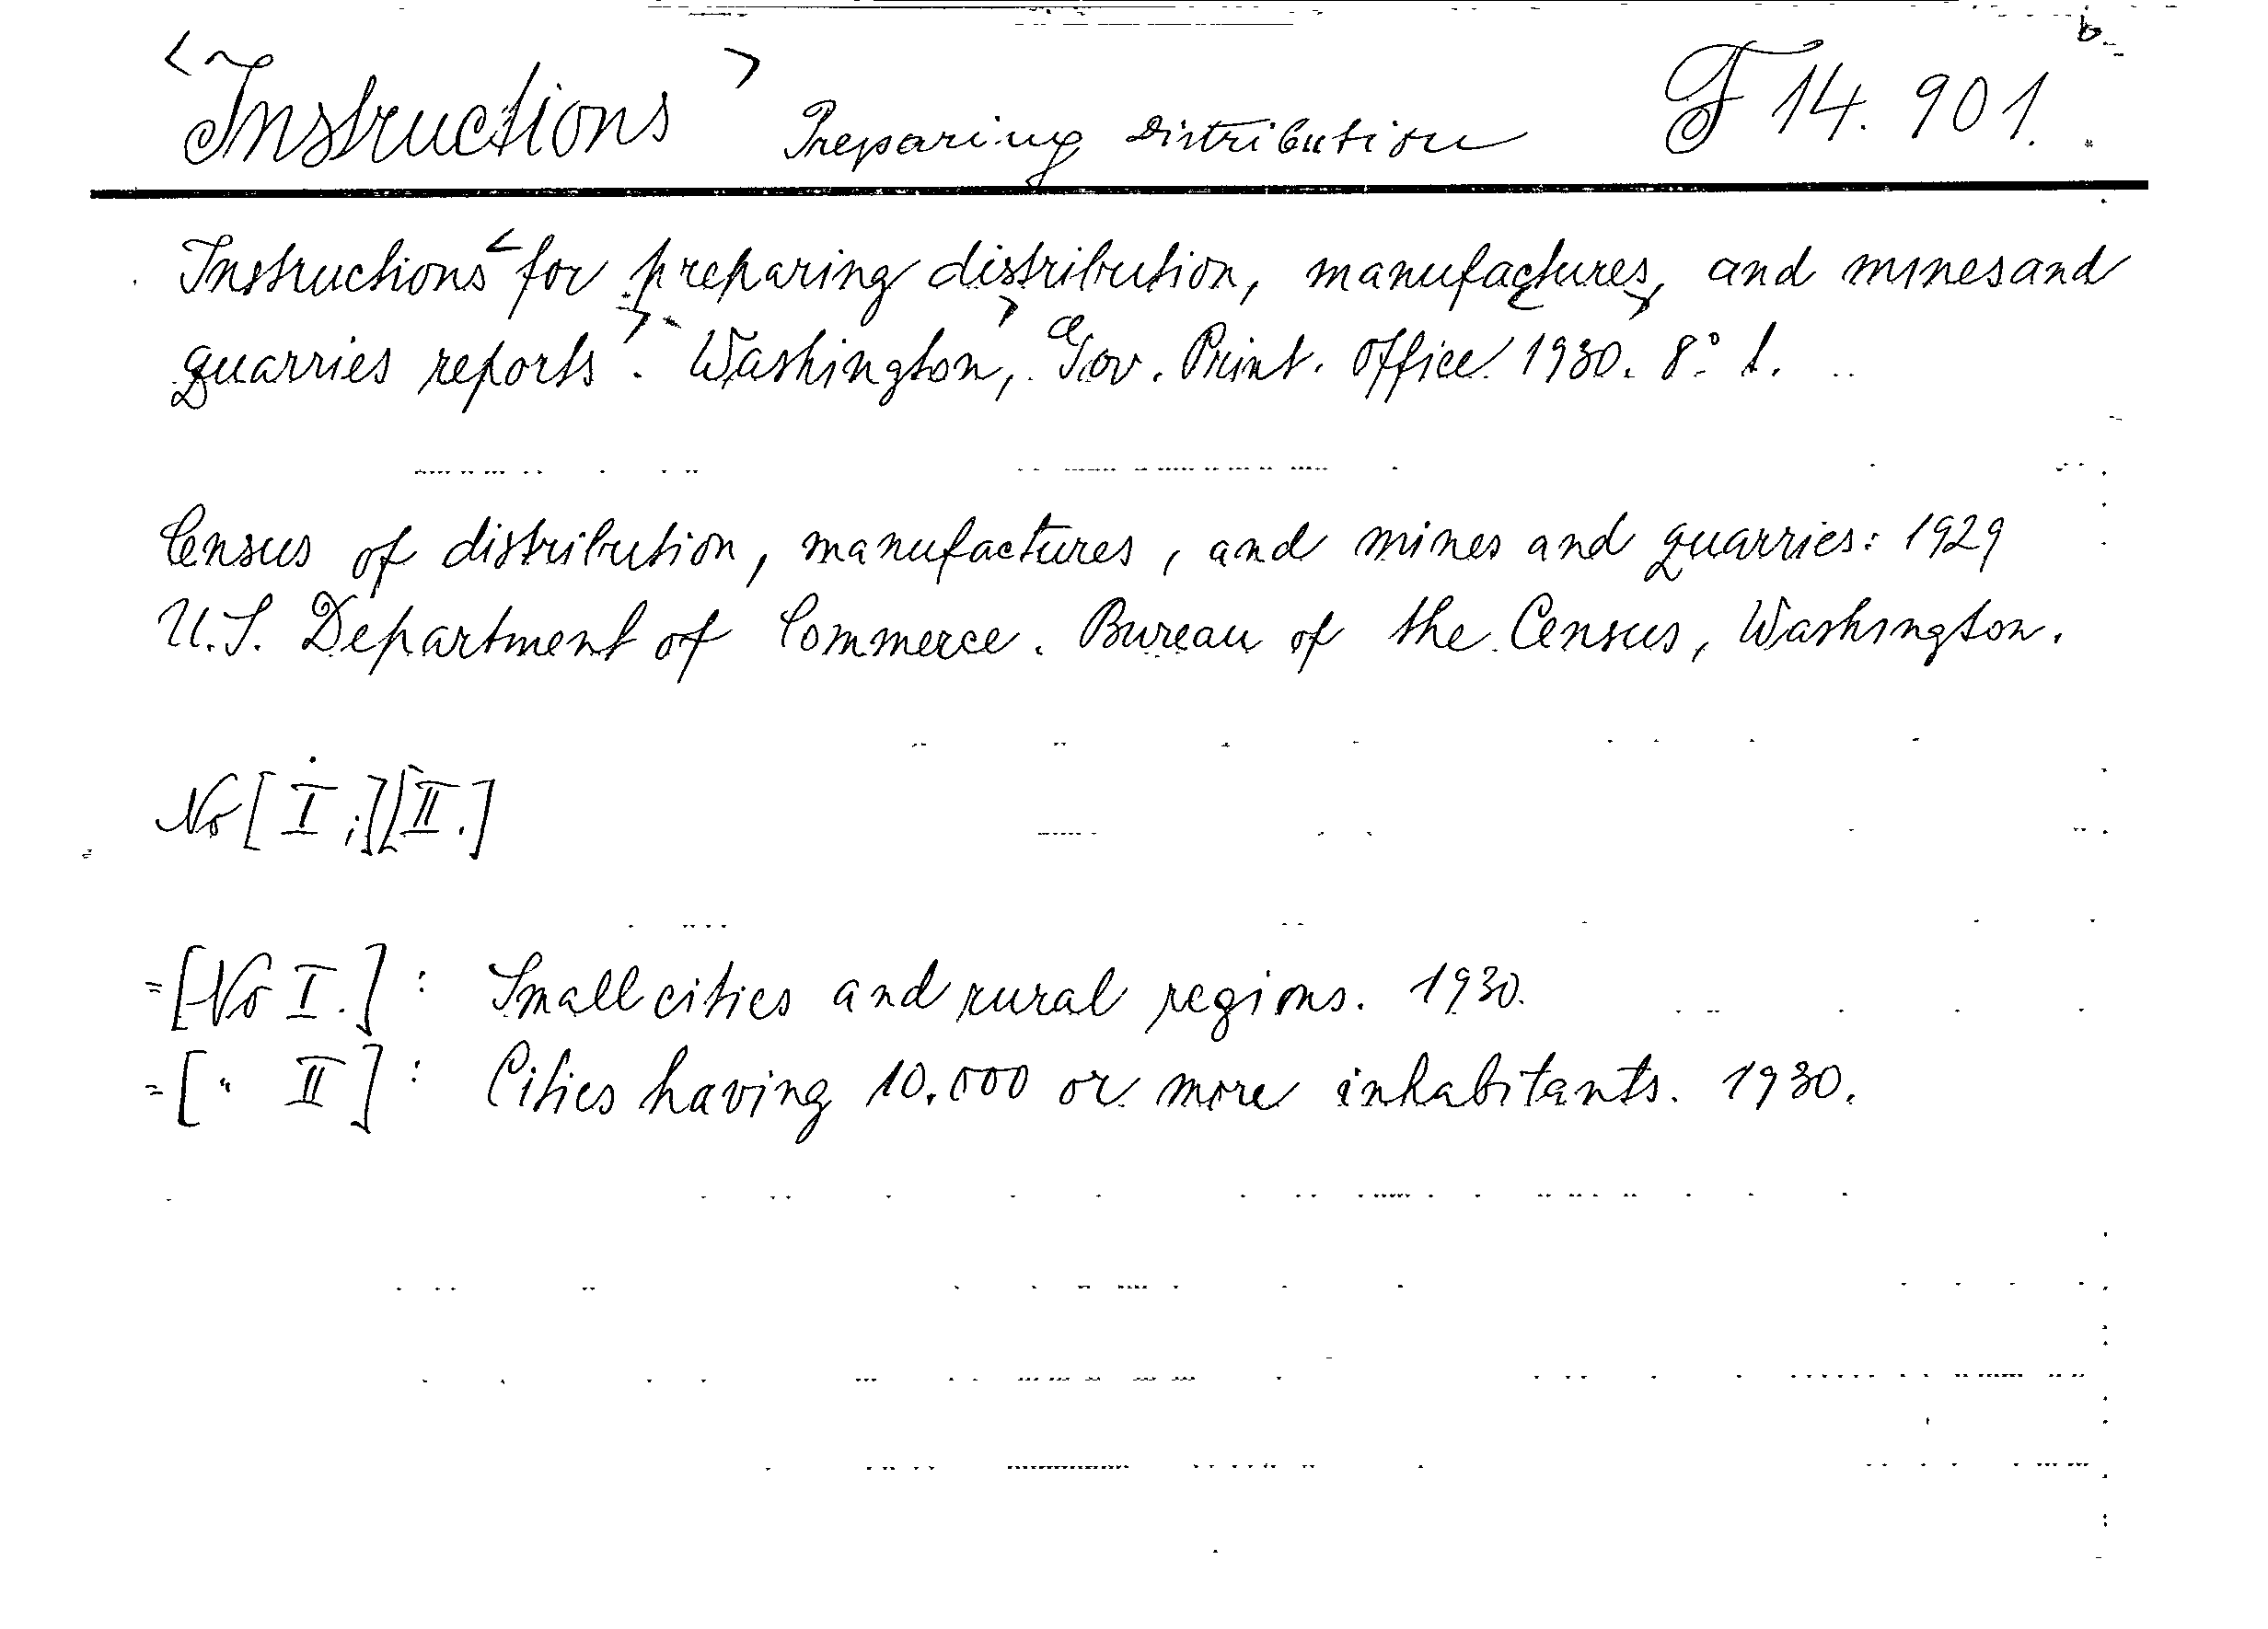 <Instructions> Preparing Distribution F 14.901.
Instructions <for preparing distribution, manufactures, and mines and
quarries reports>. Washington, Gov. Print. Office 1930. 8:°
Census of distribution, manufactures, and mines and quarries: 1929
U.S. Department of Commerce. Bureau of the Census, Washington.
No [I;][II.]
=[No I.]: Small cities and rural regions. 1930.
=[" II]: Cities having 10.000 or more inhabitants. 1930.